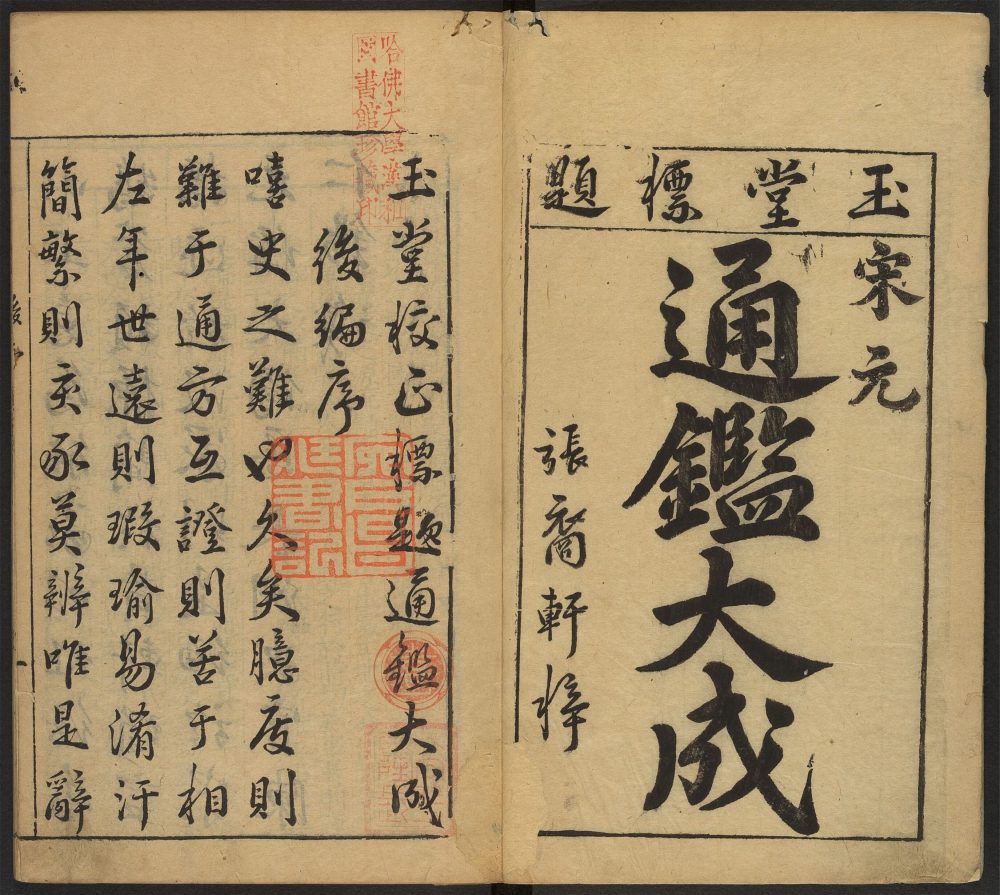 玉堂標題
宋元
通鑑大成
張裔軒梓
哈佛大學漢和
圖書館珍藏印
玉堂校正標題通鑑大成
後編序
嘻史之難也久矣臆度則
難于通方互證則苦于相
左年世遠則瑕瑜易淆汗
簡繁則亥豕莫辨唯是辭